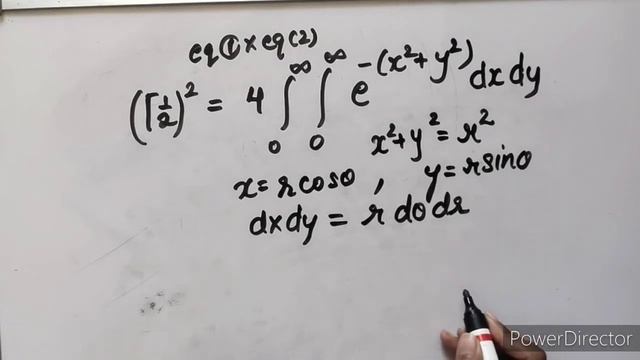 eq ① × eq (2)
(Γ½)² = 4 ∫₀^∞ ∫₀^∞ e^-(x²+y²) dx dy
x²+y² = r²
x = r cosθ , y = r sinθ
dx dy = r dθ dr
PowerDirector